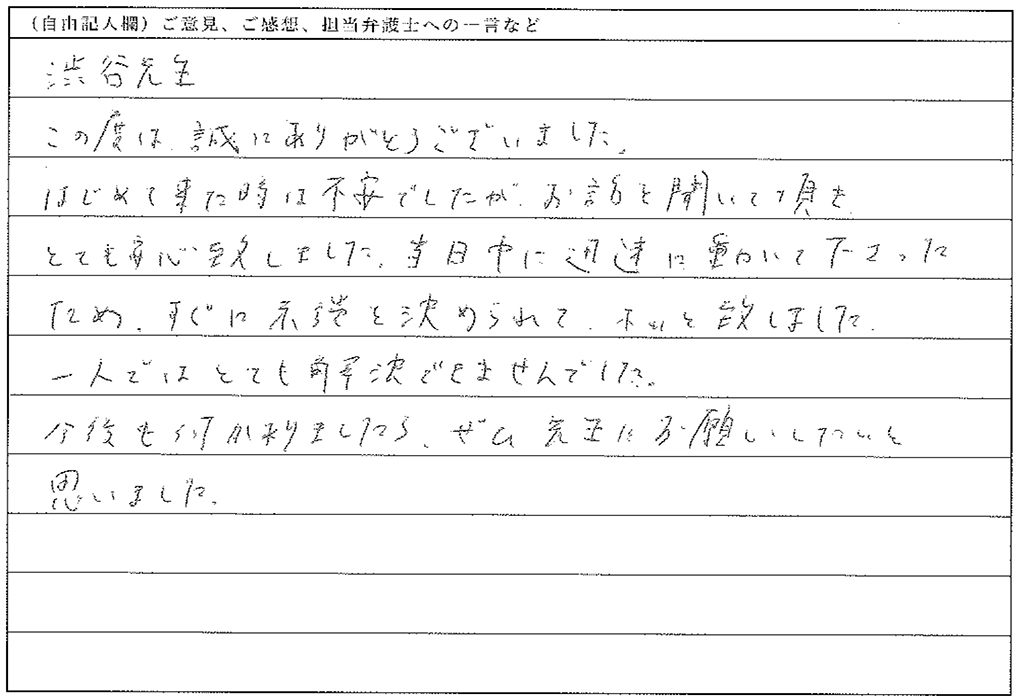 (自由記入欄)ご意見、ご感想、担当弁護士への一言など
渋谷先生
この度は、誠にありがとうございました。
はじめて来た時は不安でしたが、お話を聞いて頂き
とても安心致しました。当日中に迅速に動いて下さった
ため、すぐに依頼を決められて、ホッと致しました。
一人ではとても解決できませんでした。
今後も何かありましたら、ぜひ先生にお願いしたいと
思いました。